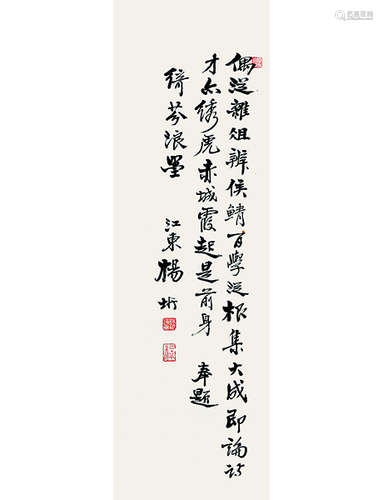 偶從雜俎辨侯鯖百學從根集大成即論詩
才亦繡虎赤城霞起是前身 奉題
綺芬浪墨 江東楊圻